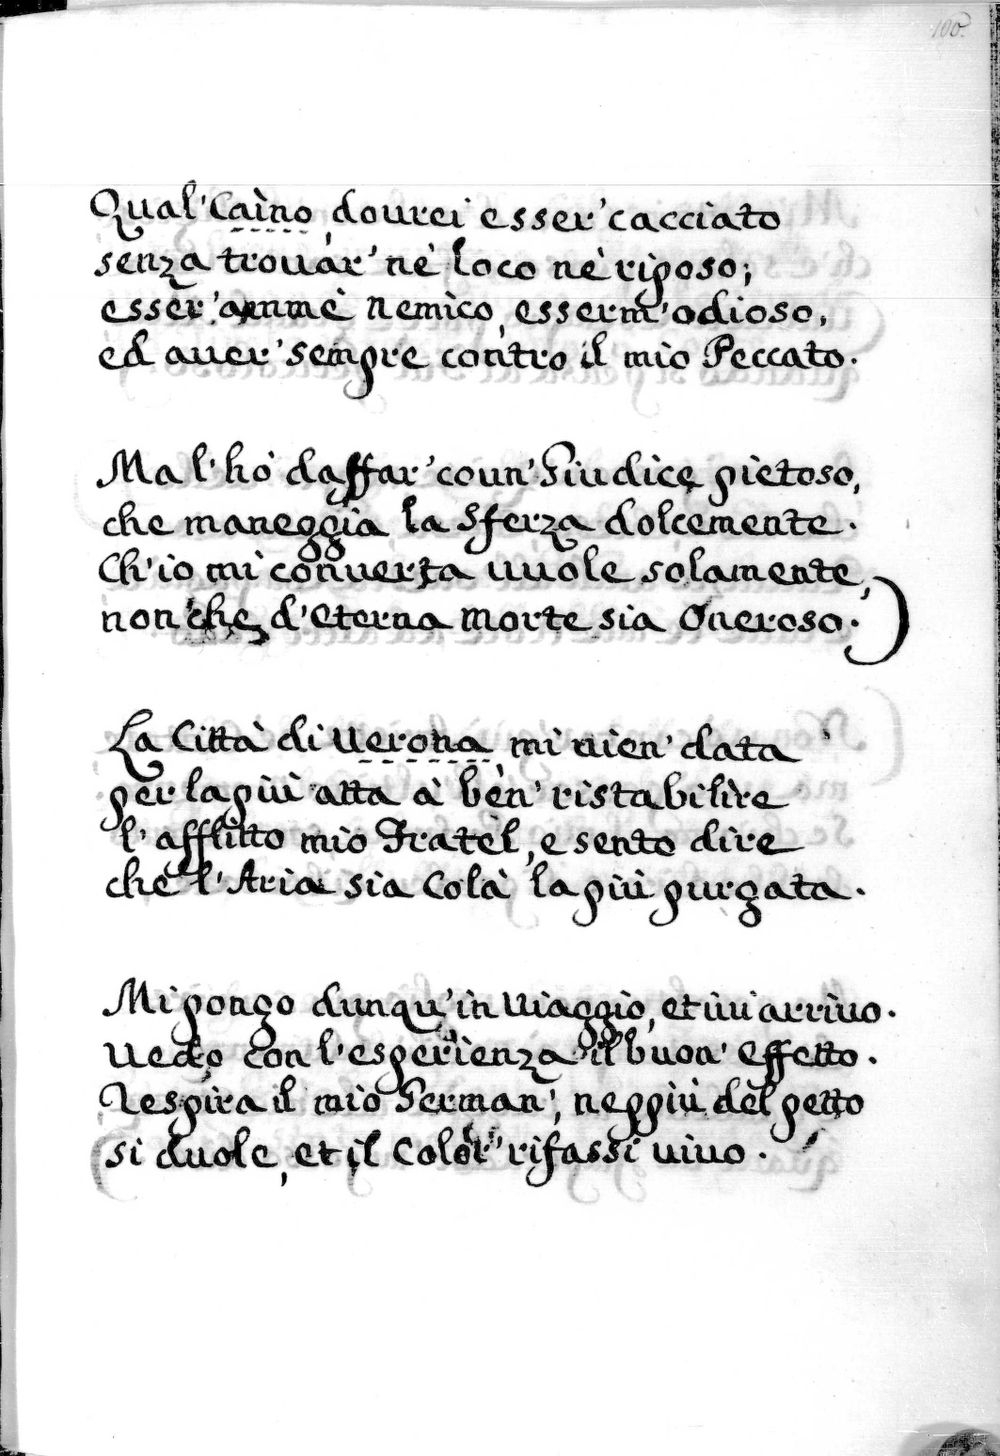 100.
Qual' Caìno, dourei esser' cacciato
senza trouàr' nè loco nè riposo;
esser' ammè nemìco, esserm' odioso,
ed auer' sempre contro il mio Peccato.
Ma l' hò daffar' coun' Giudice pietoso,
che maneggia la Sferza dolcemente.
Ch' io mi conuerta uuole solamente,
non che d' eterna morte sia Oneroso.)
La Città di Uerona, mi uien' data
per la più atta à bèn' ristabilìre
l' afflìtto mio Fratèl, e sento dire
che l' Aria sia Colà la più purgata.
Mi pongo dunqu' in Uiaggio, et iui arriuo.
Uedo con l' esperienza il buon' effetto.
Respira il mio German', neppiù del petto
si duole, et il Color' rifassi uiuo.